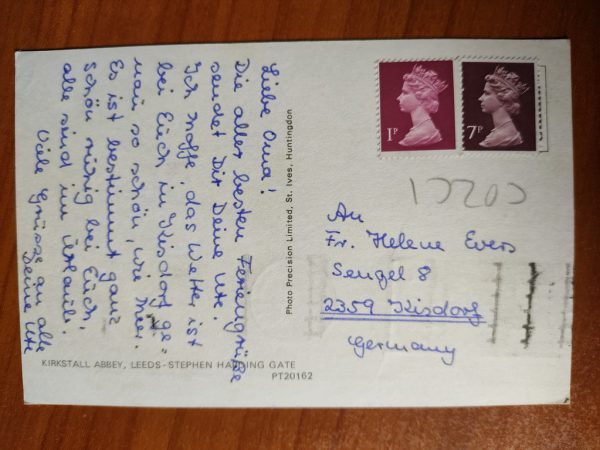 Liebe Oma!
Die aller besten Feriengrüße
sendet Dir Deine Ute.
Ich hoffe das Wetter ist
bei Euch in Kisdorf ge=
nau so schön, wie hier.
Es ist bestimmt ganz
schön ruhig bei Euch,
alle sind im Urlaub.
Viele Grüsse an alle
Deine Ute
KIRKSTALL ABBEY, LEEDS-STEPHEN HARDING GATE
PT20162
Photo Precision Limited, St. Ives, Huntingdon
1P
7P
An
Fr. Helene Evers
Sengel 8
2359 Kisdorf
Germany